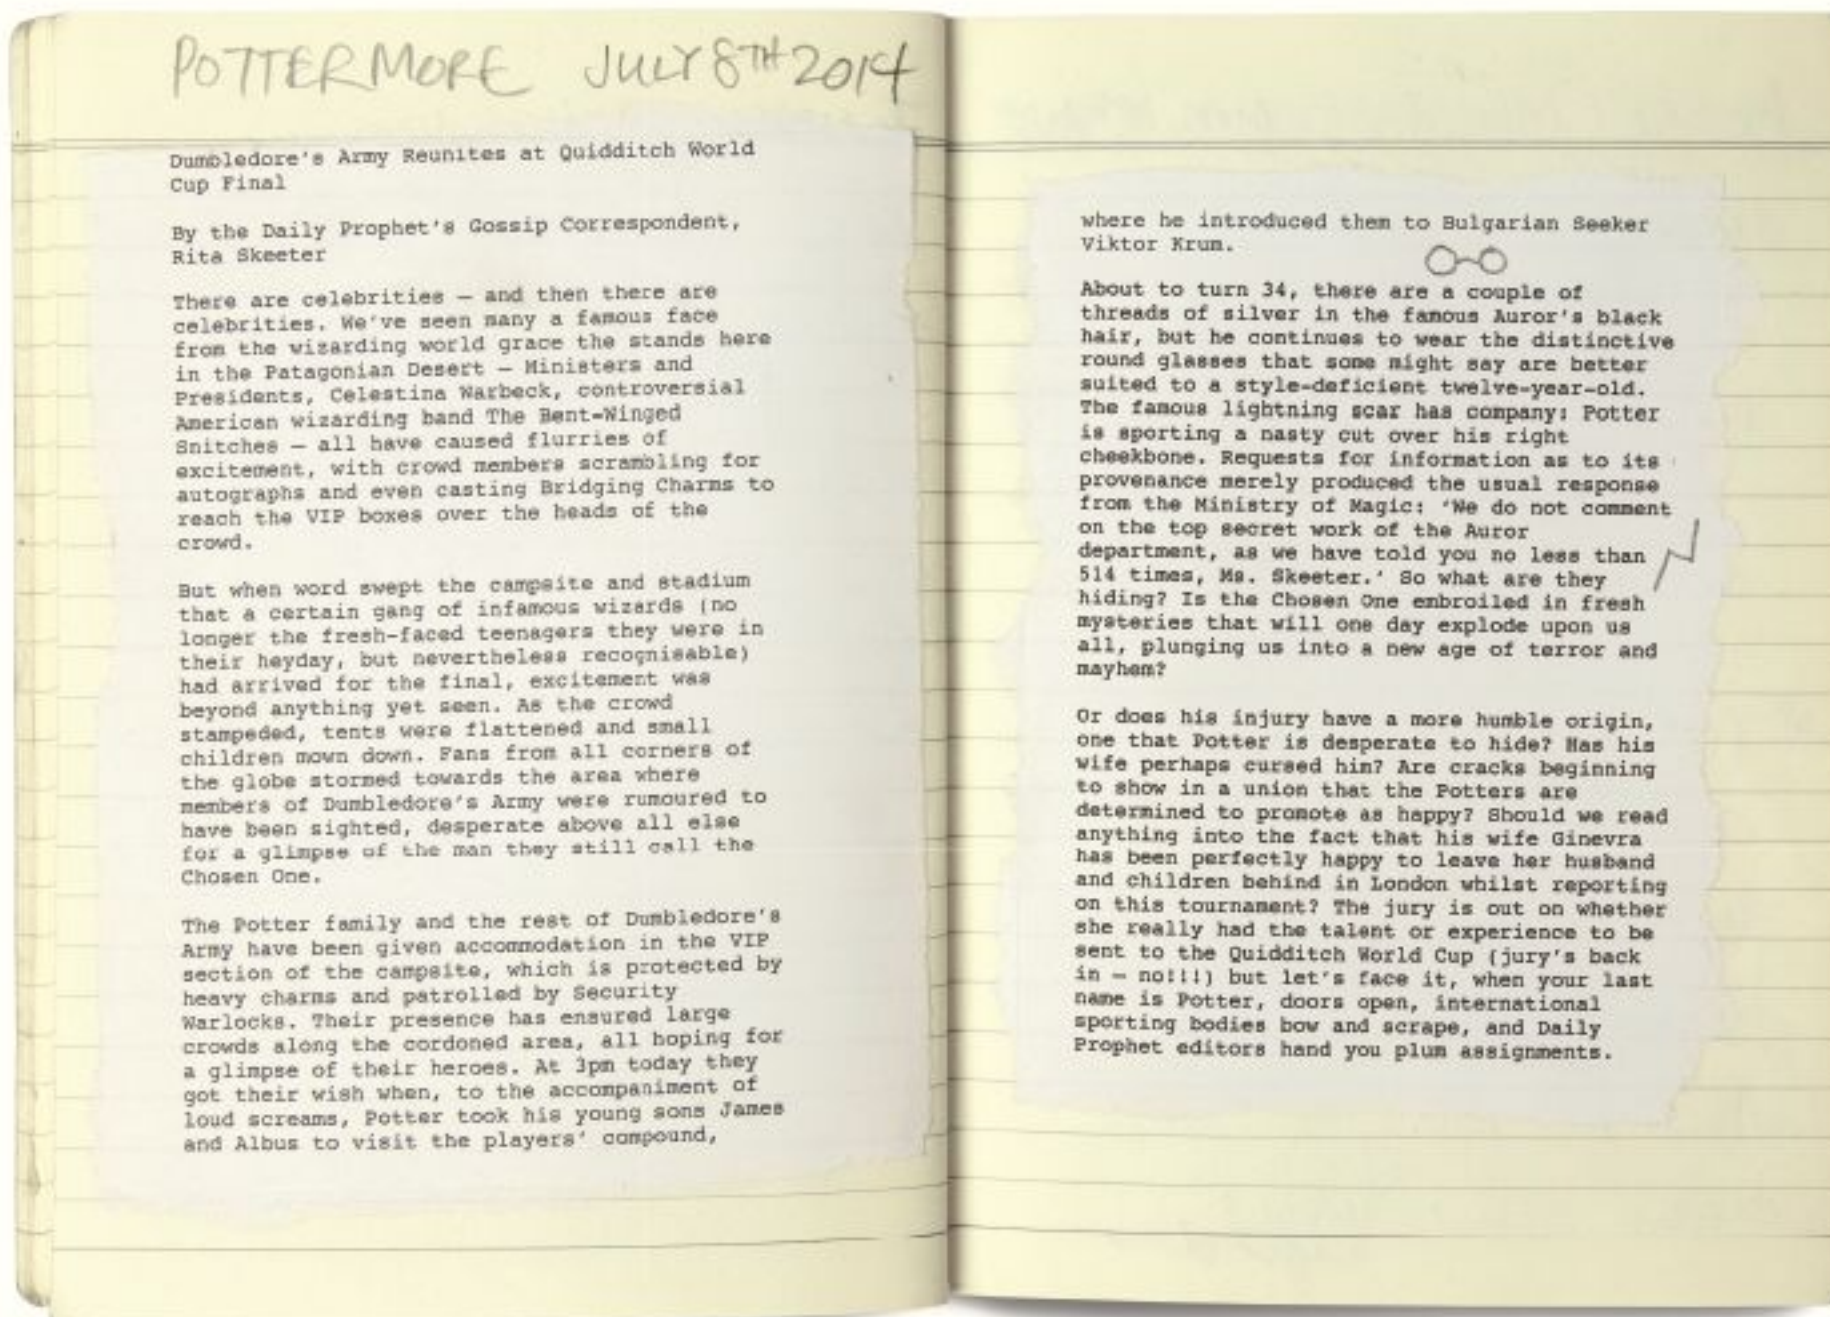 POTTERMORE JULY 8TH 2014
Dumbledore's Army Reunites at Quidditch World
Cup Final
By the Daily Prophet's Gossip Correspondent,
Rita Skeeter
There are celebrities — and then there are
celebrities. We've seen many a famous face
from the wizarding world grace the stands here
in the Patagonian Desert — Ministers and
Presidents, Celestina Warbeck, controversial
American wizarding band The Bent-Winged
Snitches — all have caused flurries of
excitement, with crowd members scrambling for
autographs and even casting Bridging Charms to
reach the VIP boxes over the heads of the
crowd.
But when word swept the campsite and stadium
that a certain gang of infamous wizards (no
longer the fresh-faced teenagers they were in
their heyday, but nevertheless recognisable)
had arrived for the final, excitement was
beyond anything yet seen. As the crowd
stampeded, tents were flattened and small
children mown down. Fans from all corners of
the globe stormed towards the area where
members of Dumbledore's Army were rumoured to
have been sighted, desperate above all else
for a glimpse of the man they still call the
Chosen One.
The Potter family and the rest of Dumbledore's
Army have been given accommodation in the VIP
section of the campsite, which is protected by
heavy charms and patrolled by Security
Warlocks. Their presence has ensured large
crowds along the cordoned area, all hoping for
a glimpse of their heroes. At 3pm today they
got their wish when, to the accompaniment of
loud screams, Potter took his young sons James
and Albus to visit the players' compound,
where he introduced them to Bulgarian Seeker
Viktor Krum.
About to turn 34, there are a couple of
threads of silver in the famous Auror's black
hair, but he continues to wear the distinctive
round glasses that some might say are better
suited to a style-deficient twelve-year-old.
The famous lightning scar has company: Potter
is sporting a nasty cut over his right
cheekbone. Requests for information as to its
provenance merely produced the usual response
from the Ministry of Magic: 'We do not comment
on the top secret work of the Auror
department, as we have told you no less than
514 times, Ms. Skeeter.' So what are they
hiding? Is the Chosen One embroiled in fresh
mysteries that will one day explode upon us
all, plunging us into a new age of terror and
mayhem?
Or does his injury have a more humble origin,
one that Potter is desperate to hide? Has his
wife perhaps cursed him? Are cracks beginning
to show in a union that the Potters are
determined to promote as happy? Should we read
anything into the fact that his wife Ginevra
has been perfectly happy to leave her husband
and children behind in London whilst reporting
on this tournament? The jury is out on whether
she really had the talent or experience to be
sent to the Quidditch World Cup (jury's back
in — no!!!) but let's face it, when your last
name is Potter, doors open, international
sporting bodies bow and scrape, and Daily
Prophet editors hand you plum assignments.